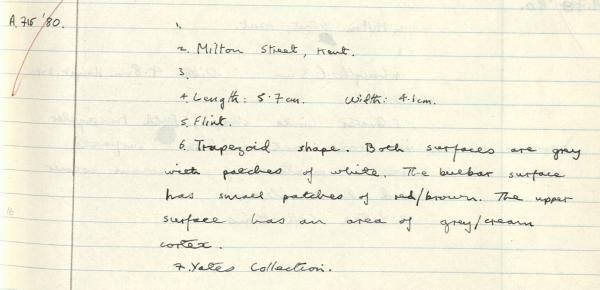 A.715 '80.
1.
2. Milton Street, Kent.
3.
4. Length: 5.7cm. Width: 4.1cm.
5. Flint.
6. Trapezoid shape. Both surfaces are grey
with patches of white. The bulbar surface
has small patches of red/brown. The upper
surface has an area of grey/cream
cortex.
7. Yates Collection.